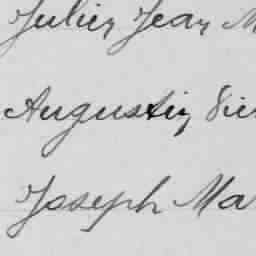 Julien Jean M
Augustin Vie
Joseph Ma